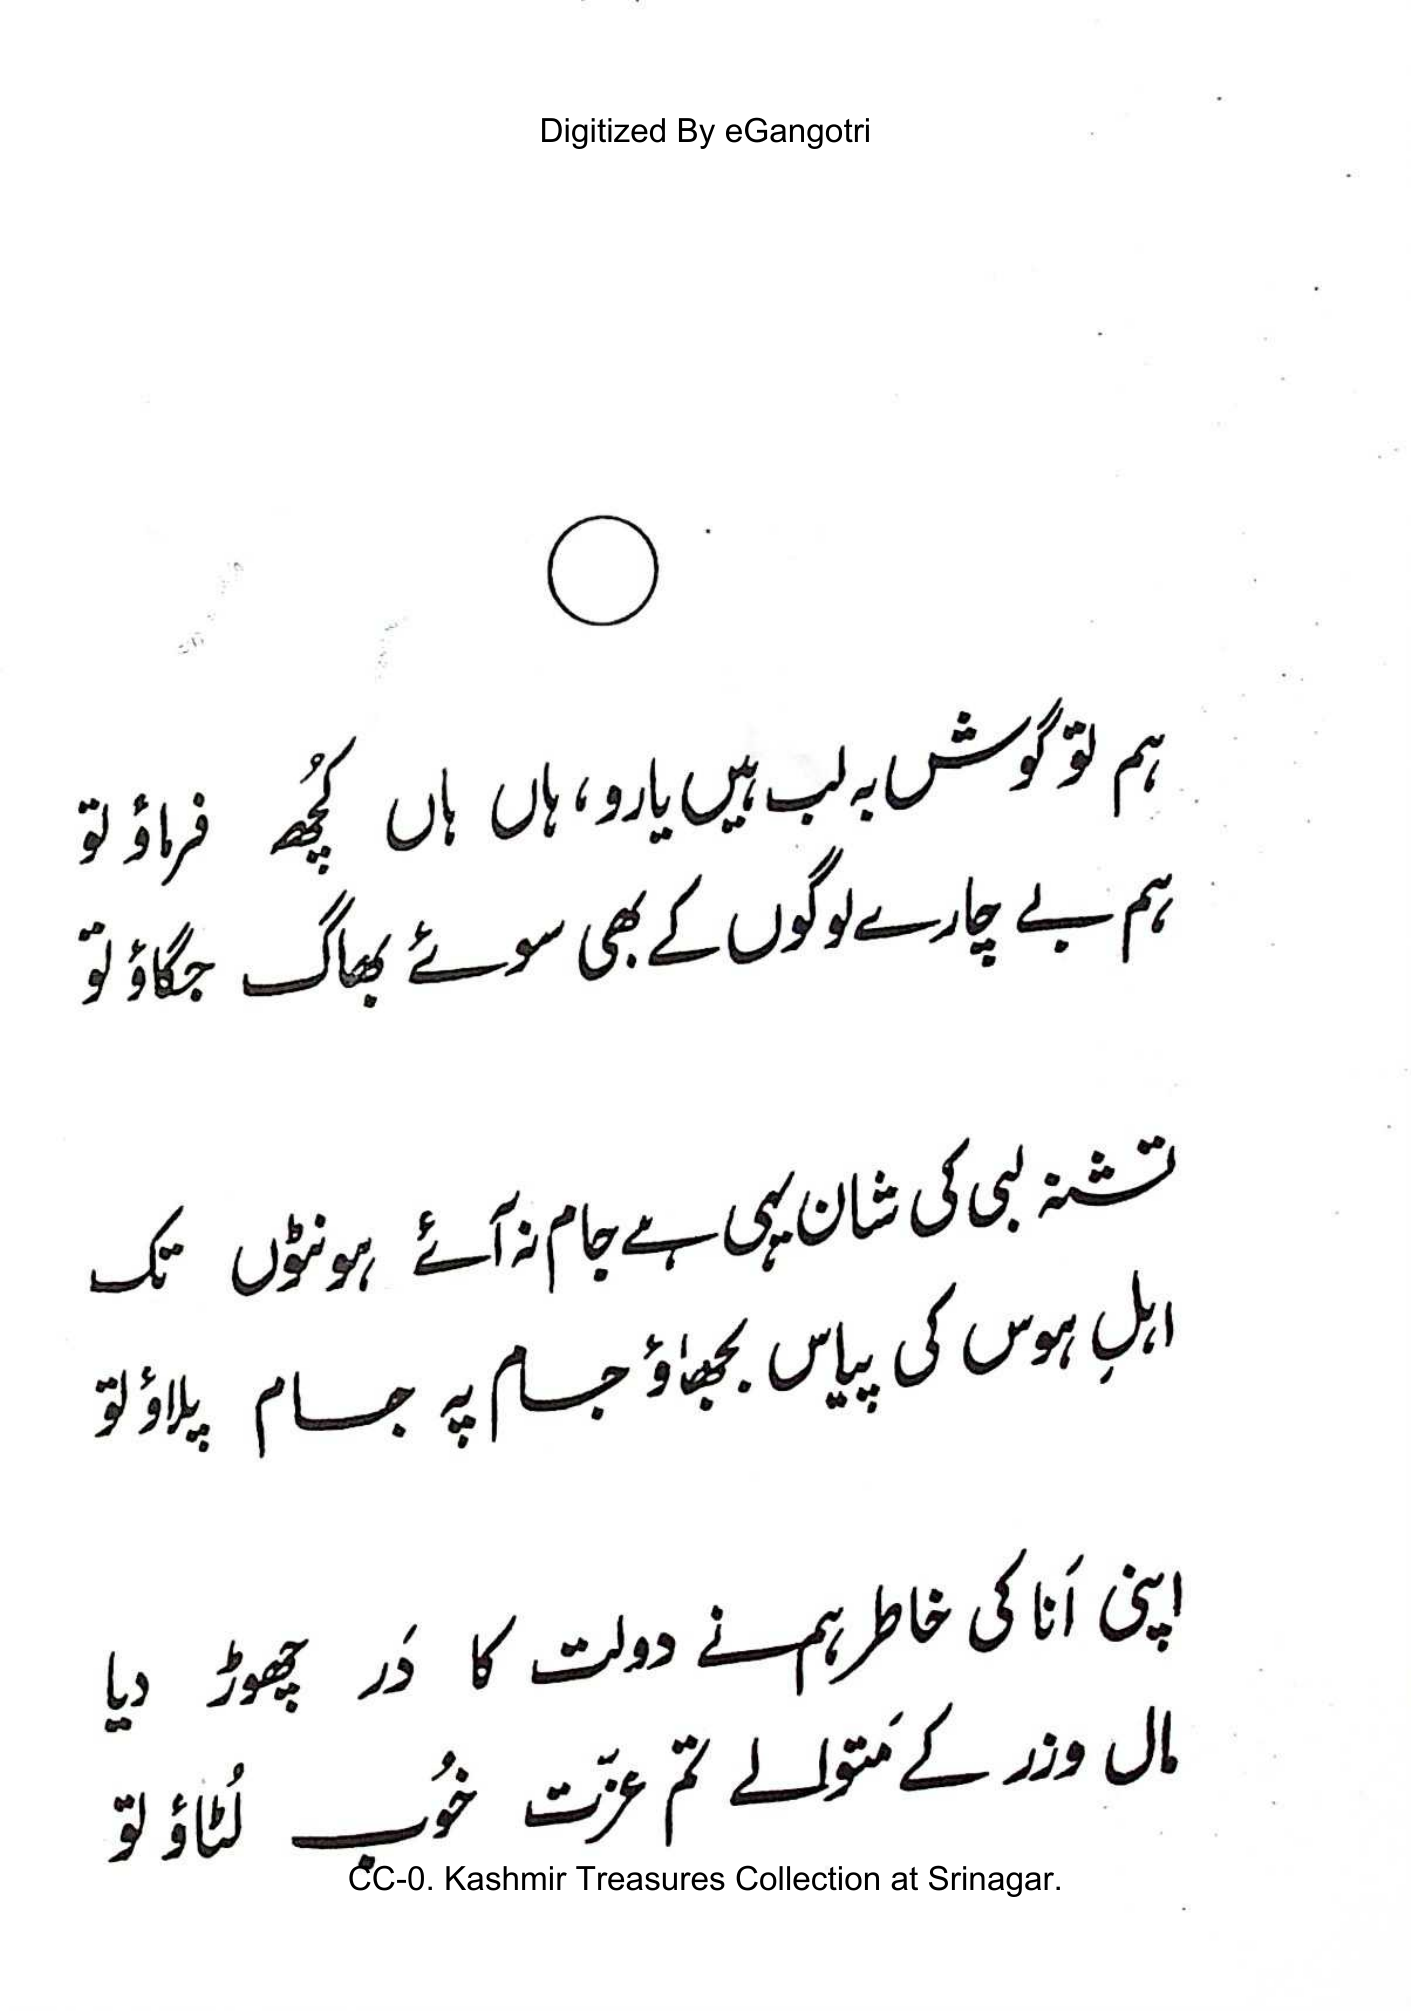 Digitized By eGangotri
ہم تو گوش بہ لب ہیں یارو، ہاں ہاں کُچھ فرماؤ تو
ہم بے چارے لوگوں کے بھی سوئے بھاگ جگاؤ تو
تشنہ لبی کی شان یہی ہے جام نہ آئے ہونٹوں تک
اہلِ ہوس کی پیاس بجھاؤ جام پہ جام پلاؤ تو
اپنی اَنا کی خاطر ہم نے دولت کا دَر چھوڑ دیا
مال وزر کے مَتوالے تم عزّت خُوب لُٹاؤ تو
CC-0. Kashmir Treasures Collection at Srinagar.